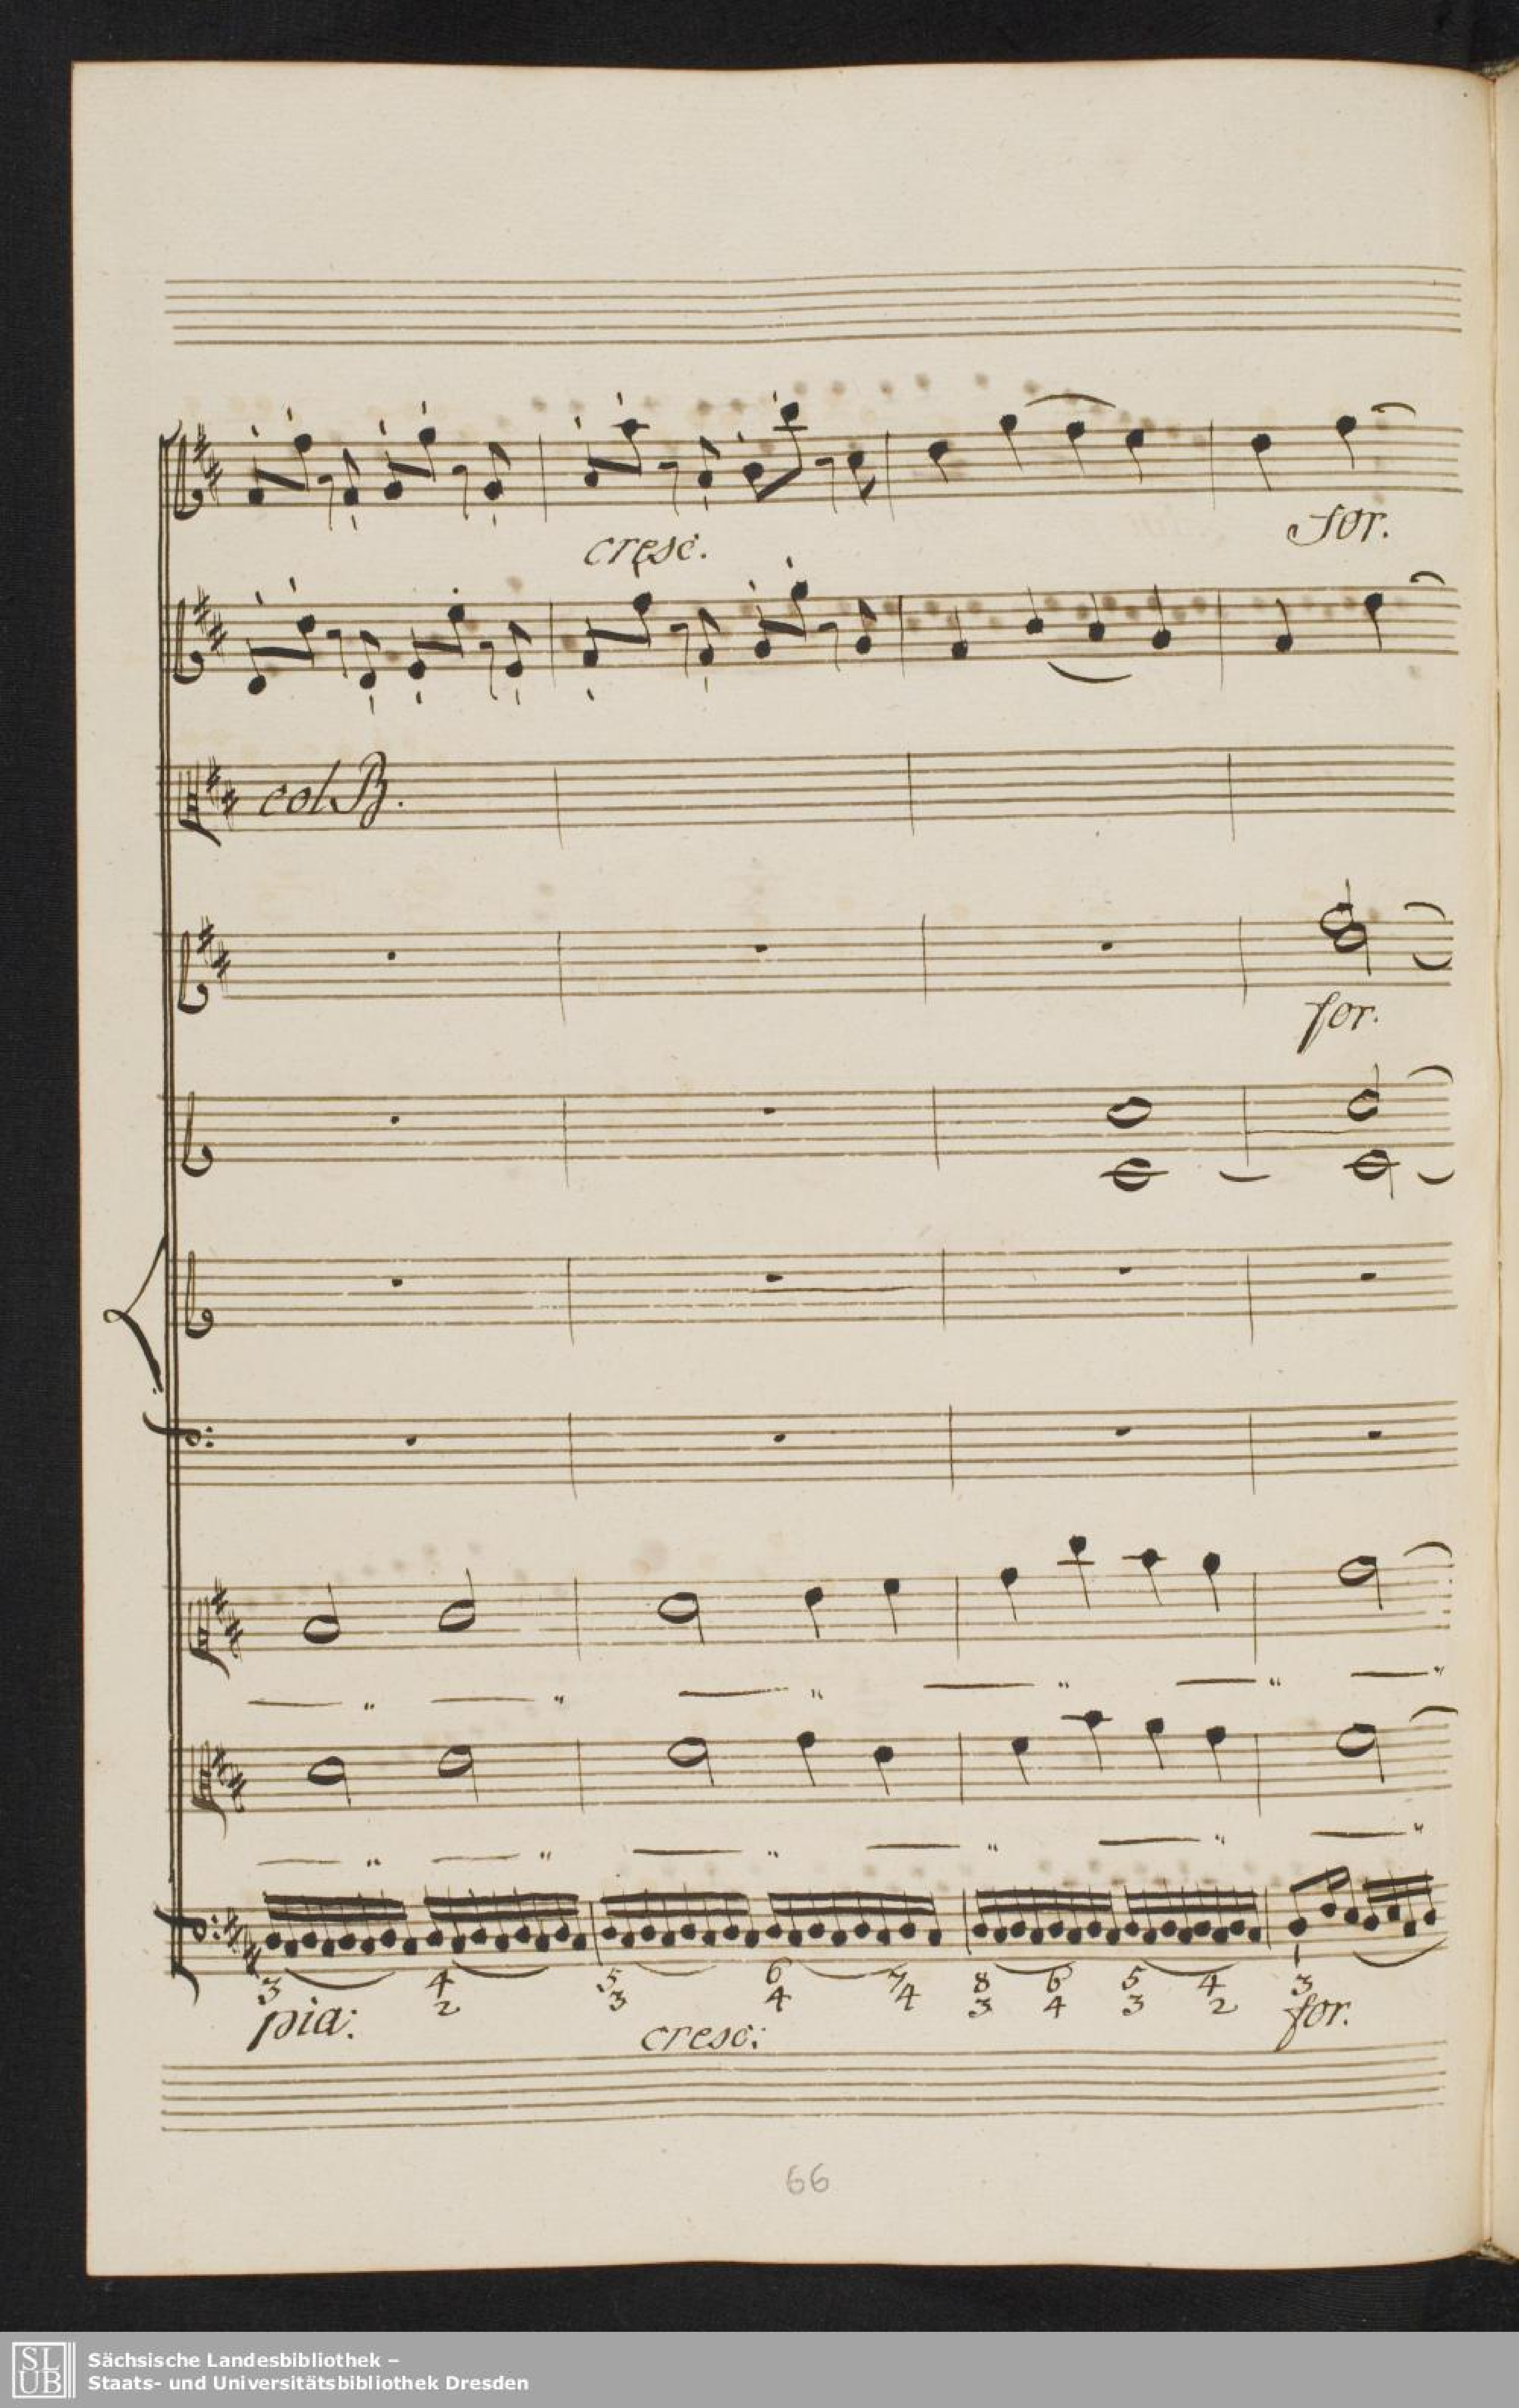 cresc.
for.
col B.
for.
3 4 5 6 7 8 6 5 4 3
2 3 4 4 3 4 3 2
pia: cresc: for.
66
SLUB
Sächsische Landesbibliothek –
Staats- und Universitätsbibliothek Dresden